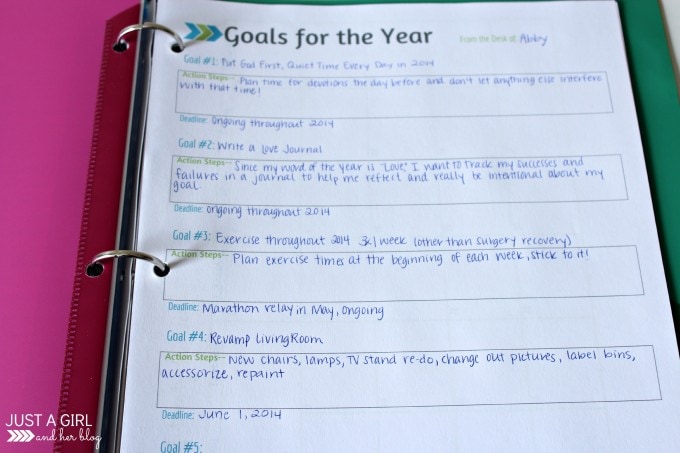 Goals for the Year
From the Desk of: Abby
Goal #1: Put God First, Quiet Time Every Day in 2014
Action Steps-- Plan time for devotions the day before and don't let anything else interfere
with that time!
Deadline: Ongoing throughout 2014
Goal #2: Write a Love Journal
Action Steps-- Since my word of the year is "Love," I want to track my successes and
failures in a journal to help me reflect and really be intentional about my
goal.
Deadline: ongoing throughout 2014
Goal #3: Exercise throughout 2014 3x/week (other than surgery recovery)
Action Steps-- Plan exercise times at the beginning of each week, stick to it!
Deadline: Marathon relay in May, ongoing
Goal #4: Revamp Living Room
Action Steps-- New chairs, lamps, TV stand re-do, change out pictures, label bins,
accessorize, repaint
Deadline: June 1, 2014
Goal #5:
JUST A GIRL
and her blog